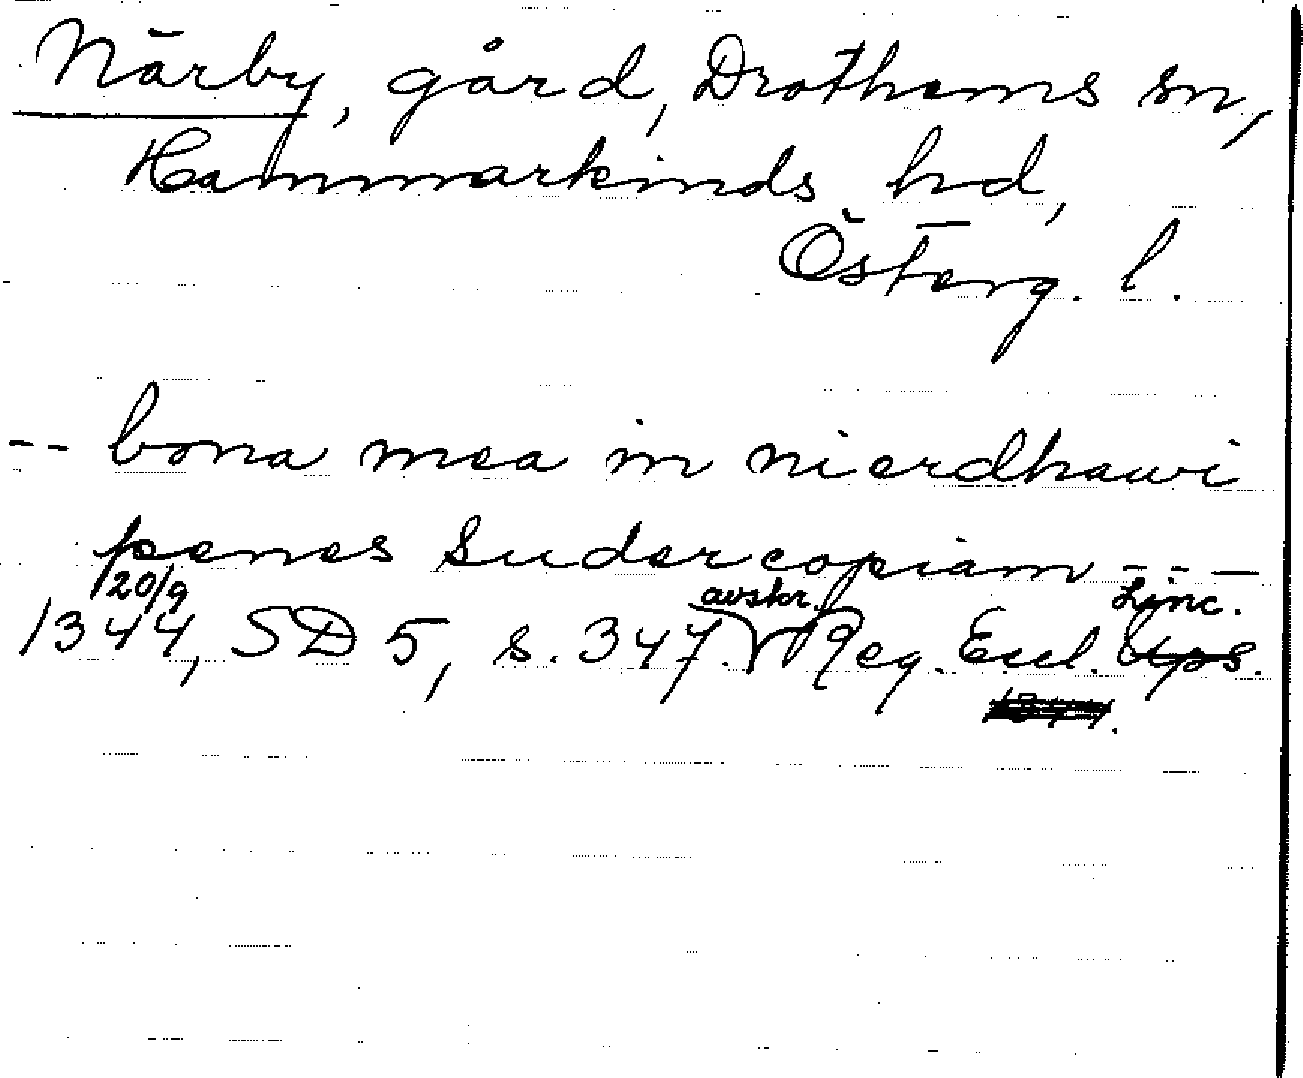 Närby, gård, Drothems sn,
Hammarkinds hd,
Österg. l.
-- bona mea in nierdhawi
penes Sudercopiam ---
20/9 1344, SD 5, s. 347. avskr. Reg. Eccl. Linc.